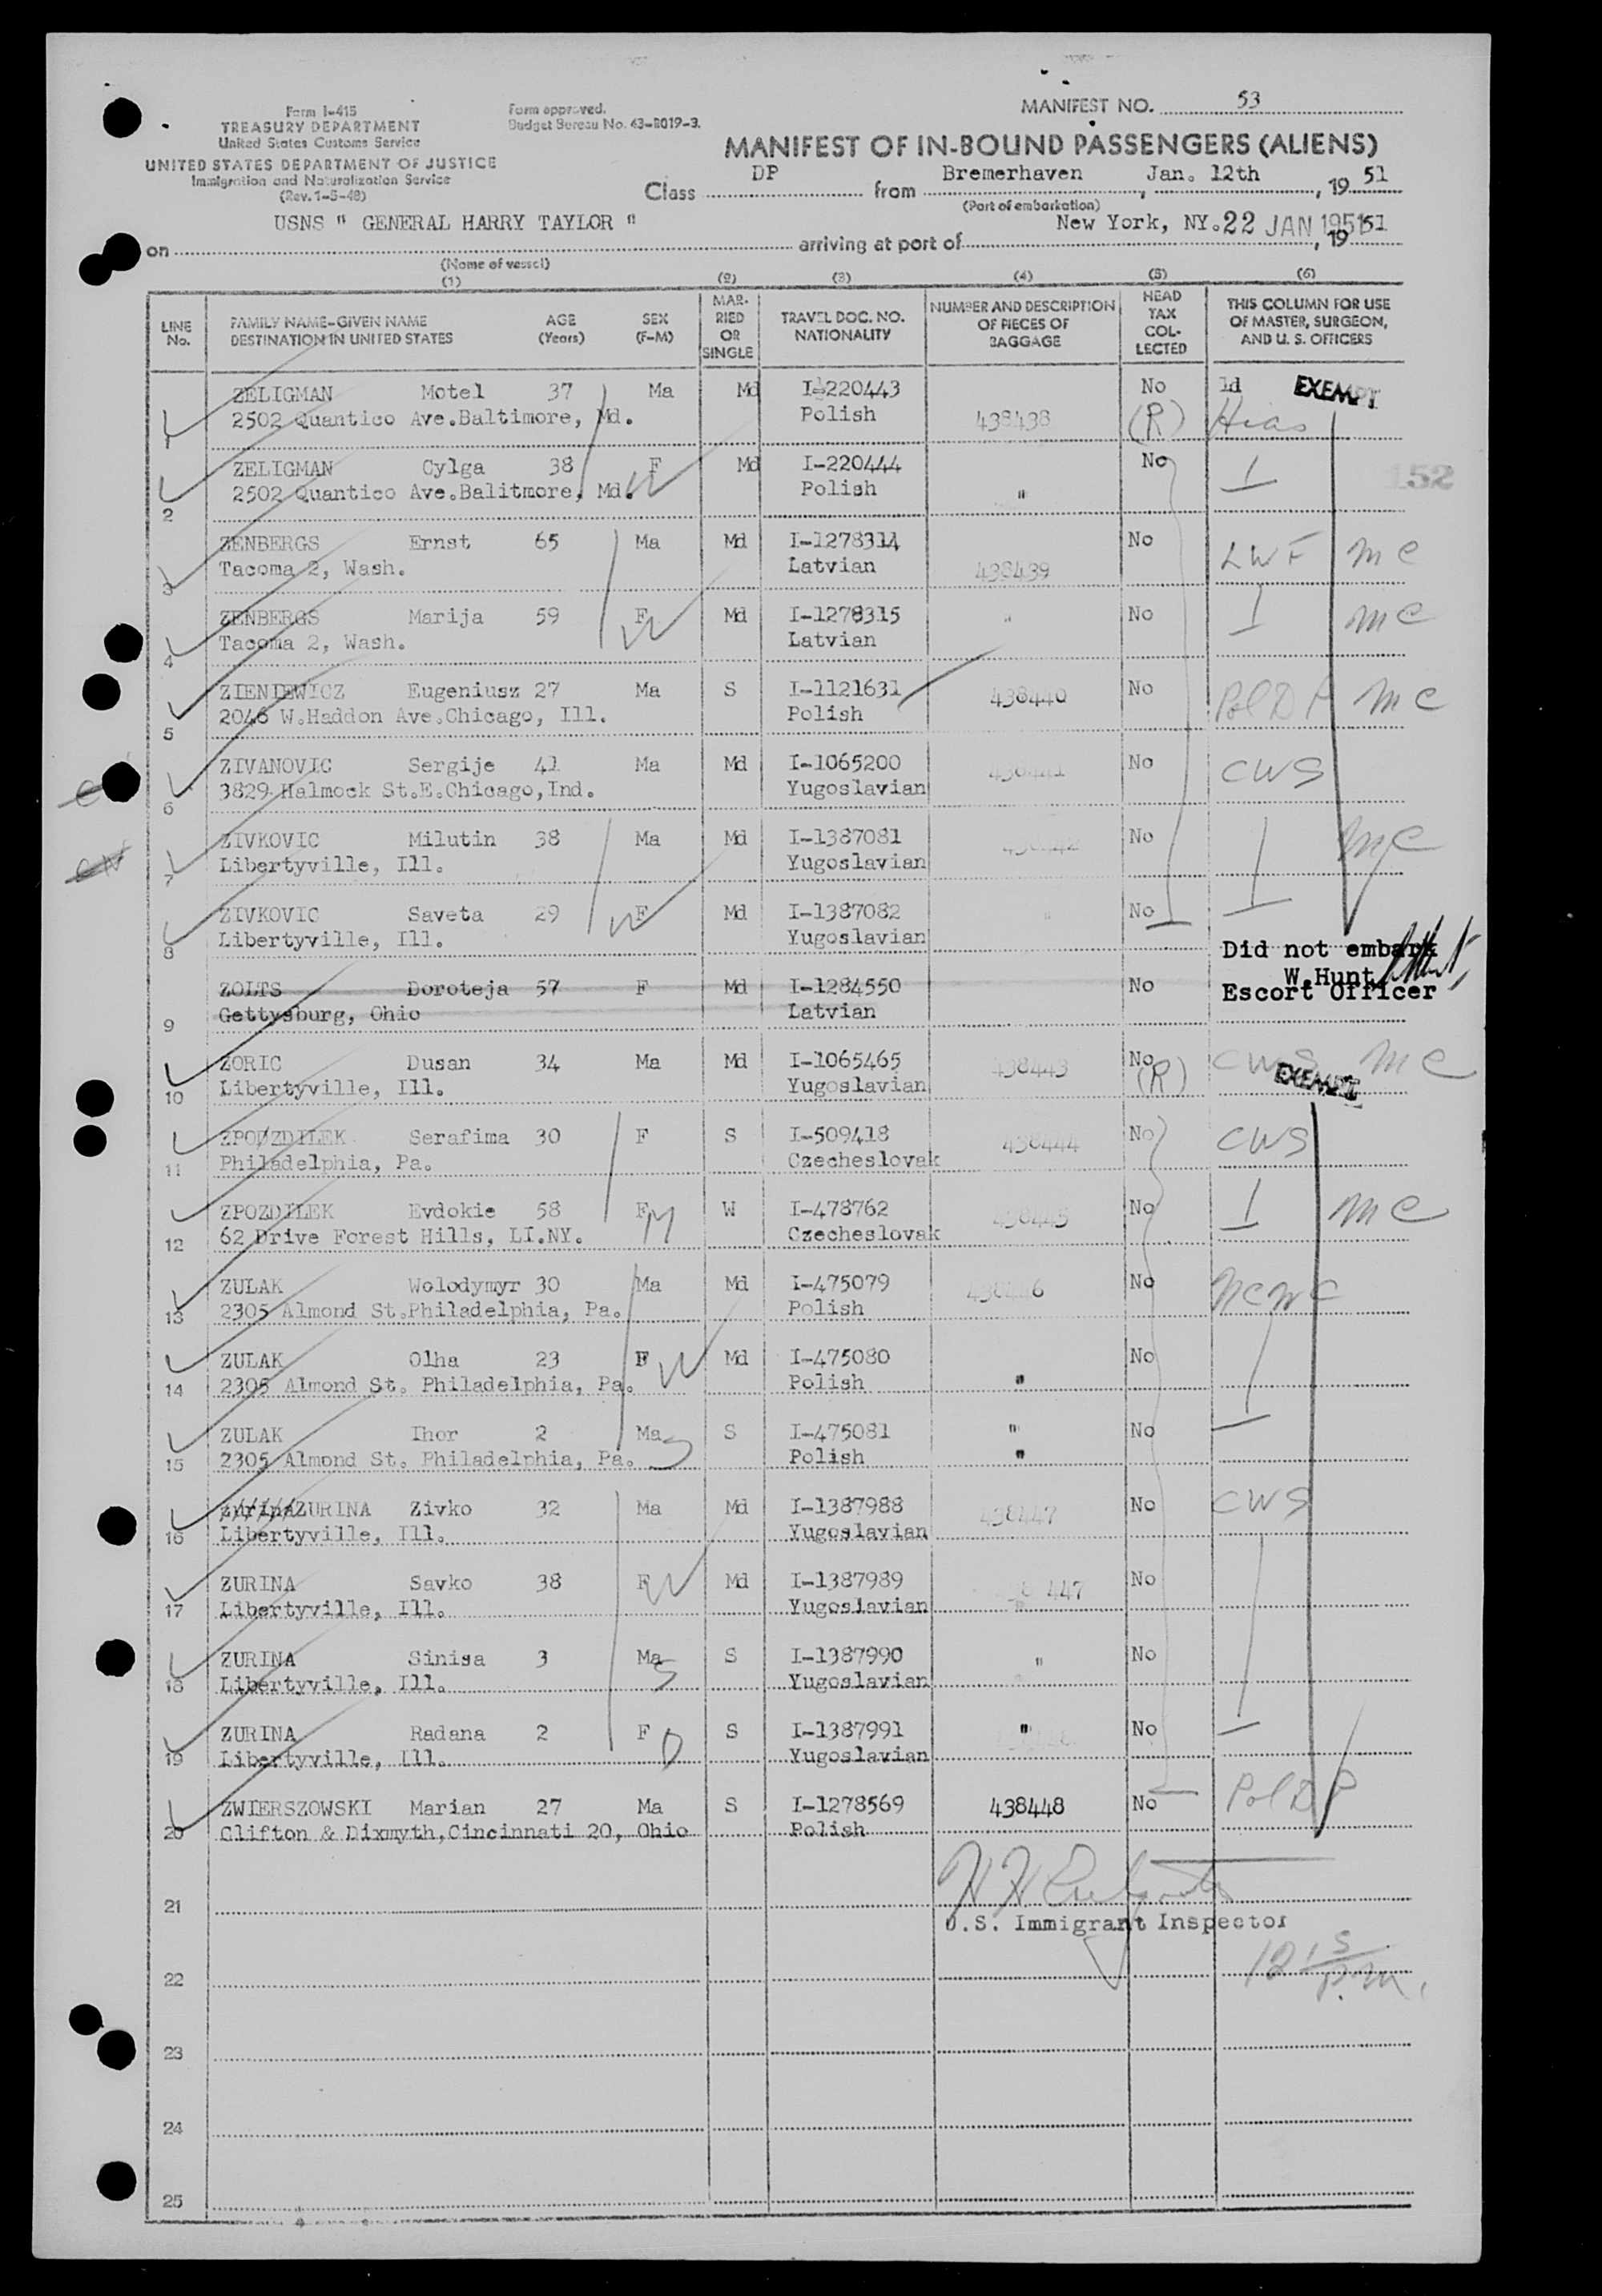 Form I-415
TREASURY DEPARTMENT
United States Customs Service
UNITED STATES DEPARTMENT OF JUSTICE
Immigration and Naturalization Service
(Rev. 1-5-48)
Form approved.
Budget Bureau No. 43-R019-3.
MANIFEST NO. 53
MANIFEST OF IN-BOUND PASSENGERS (ALIENS)
Class DP from Bremerhaven, Jan. 12th, 19 51
(Port of embarkation)
on USNS " GENERAL HARRY TAYLOR " arriving at port of New York, NY. 22 JAN 1951, 19 51
(Name of vessel)
(1) (2) (3) (4) (5) (6)
LINE No. FAMILY NAME-GIVEN NAME DESTINATION IN UNITED STATES AGE (Years) SEX (F-M) MARRIED OR SINGLE TRAVEL DOC. NO. NATIONALITY NUMBER AND DESCRIPTION OF PIECES OF BAGGAGE HEAD TAX COLLECTED THIS COLUMN FOR USE OF MASTER, SURGEON, AND U. S. OFFICERS
ZELIGMAN Motel 37 Ma Md I-220443 No 1d EXEMPT
1 2502 Quantico Ave.Baltimore, Md. Polish 438438 (R) Hias
ZELIGMAN Cylga 38 F W Md I-220444 No
2 2502 Quantico Ave.Balitmore, Md. Polish " 152
ZENBERGS Ernst 65 Ma Md I-1278314 No LWF MC
3 Tacoma 2, Wash. Latvian 438439
ZENBERGS Marija 59 F W Md I-1278315 " No MC
4 Tacoma 2, Wash. Latvian
ZIENIEWICZ Eugeniusz 27 Ma S I-1121631 438440 No Pol DP MC
5 2046 W.Haddon Ave.Chicago, Ill. Polish
ZIVANOVIC Sergije 41 Ma Md I-1065200 438441 No CWS
6 3829 Halmock St.E.Chicago,Ind. Yugoslavian
ZIVKOVIC Milutin 38 Ma Md I-1387081 438442 No MC
7 Libertyville, Ill. Yugoslavian
ZIVKOVIC Saveta 29 F W Md I-1387082 " No
8 Libertyville, Ill. Yugoslavian
Did not embark
W.Hunt
Escort Officer
ZOLTS Doroteja 57 F Md I-1284550 No
9 Gettysburg, Ohio Latvian
ZORIC Dusan 34 Ma Md I-1065465 438443 No CWS MC
10 Libertyville, Ill. Yugoslavian (R) EXEMPT
ZPOZDILEK Serafima 30 F S I-509418 438444 No CWS
11 Philadelphia, Pa. Czecheslovak
ZPOZDILEK Evdokie 58 F M W I-478762 438445 No MC
12 62 Drive Forest Hills, LI.NY. Czecheslovak
ZULAK Wolodymyr 30 Ma Md I-475079 438446 No NCWC
13 2305 Almond St.Philadelphia, Pa. Polish
ZULAK Olha 23 F W Md I-475080 No
14 2305 Almond St. Philadelphia, Pa. Polish "
ZULAK Ihor 2 Ma S S I-475081 " No
15 2305 Almond St. Philadelphia, Pa. Polish "
zurina ZURINA Zivko 32 Ma Md I-1387988 438447 No CWS
16 Libertyville, Ill. Yugoslavian
ZURINA Savko 38 F W Md I-1387989 447 No
17 Libertyville, Ill. Yugoslavian
ZURINA Sinisa 3 Ma S S I-1387990 " No
18 Libertyville, Ill. Yugoslavian
ZURINA Radana 2 F D S I-1387991 " No
19 Libertyville, Ill. Yugoslavian
ZWIERSZOWSKI Marian 27 Ma S I-1278569 438448 No Pol DP
20 Clifton & Dixmyth,Cincinnati 20, Ohio Polish
21
U.S. Immigrant Inspector
22 12 15 p.m.
23
24
25